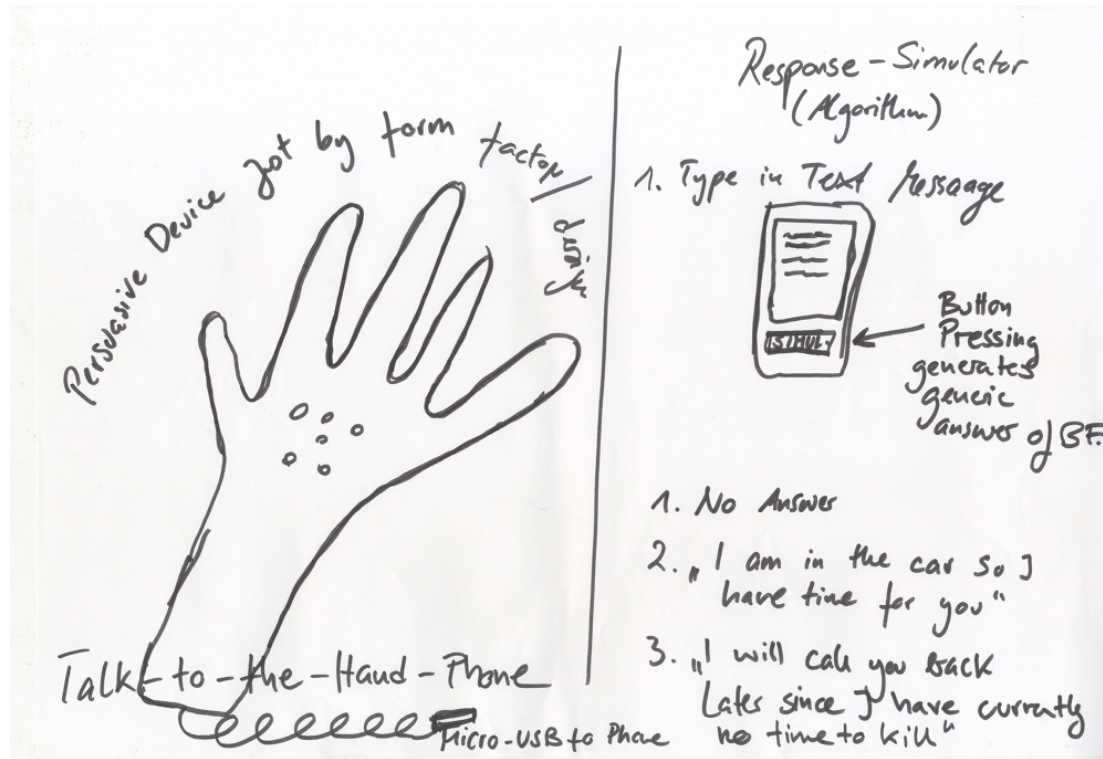 Persuasive Device Just by form factor / Design
Talk-to-the-Hand-Phone
Micro-USB to Phone
Response-Simulator
(Algorithm)
1. Type in Text Message
Button
Pressing
generates
generic
answer of BF.
1. No Answer
2. „I am in the car so I
have time for you“
3. „I will call you back
Later since I have currently
no time to kill“